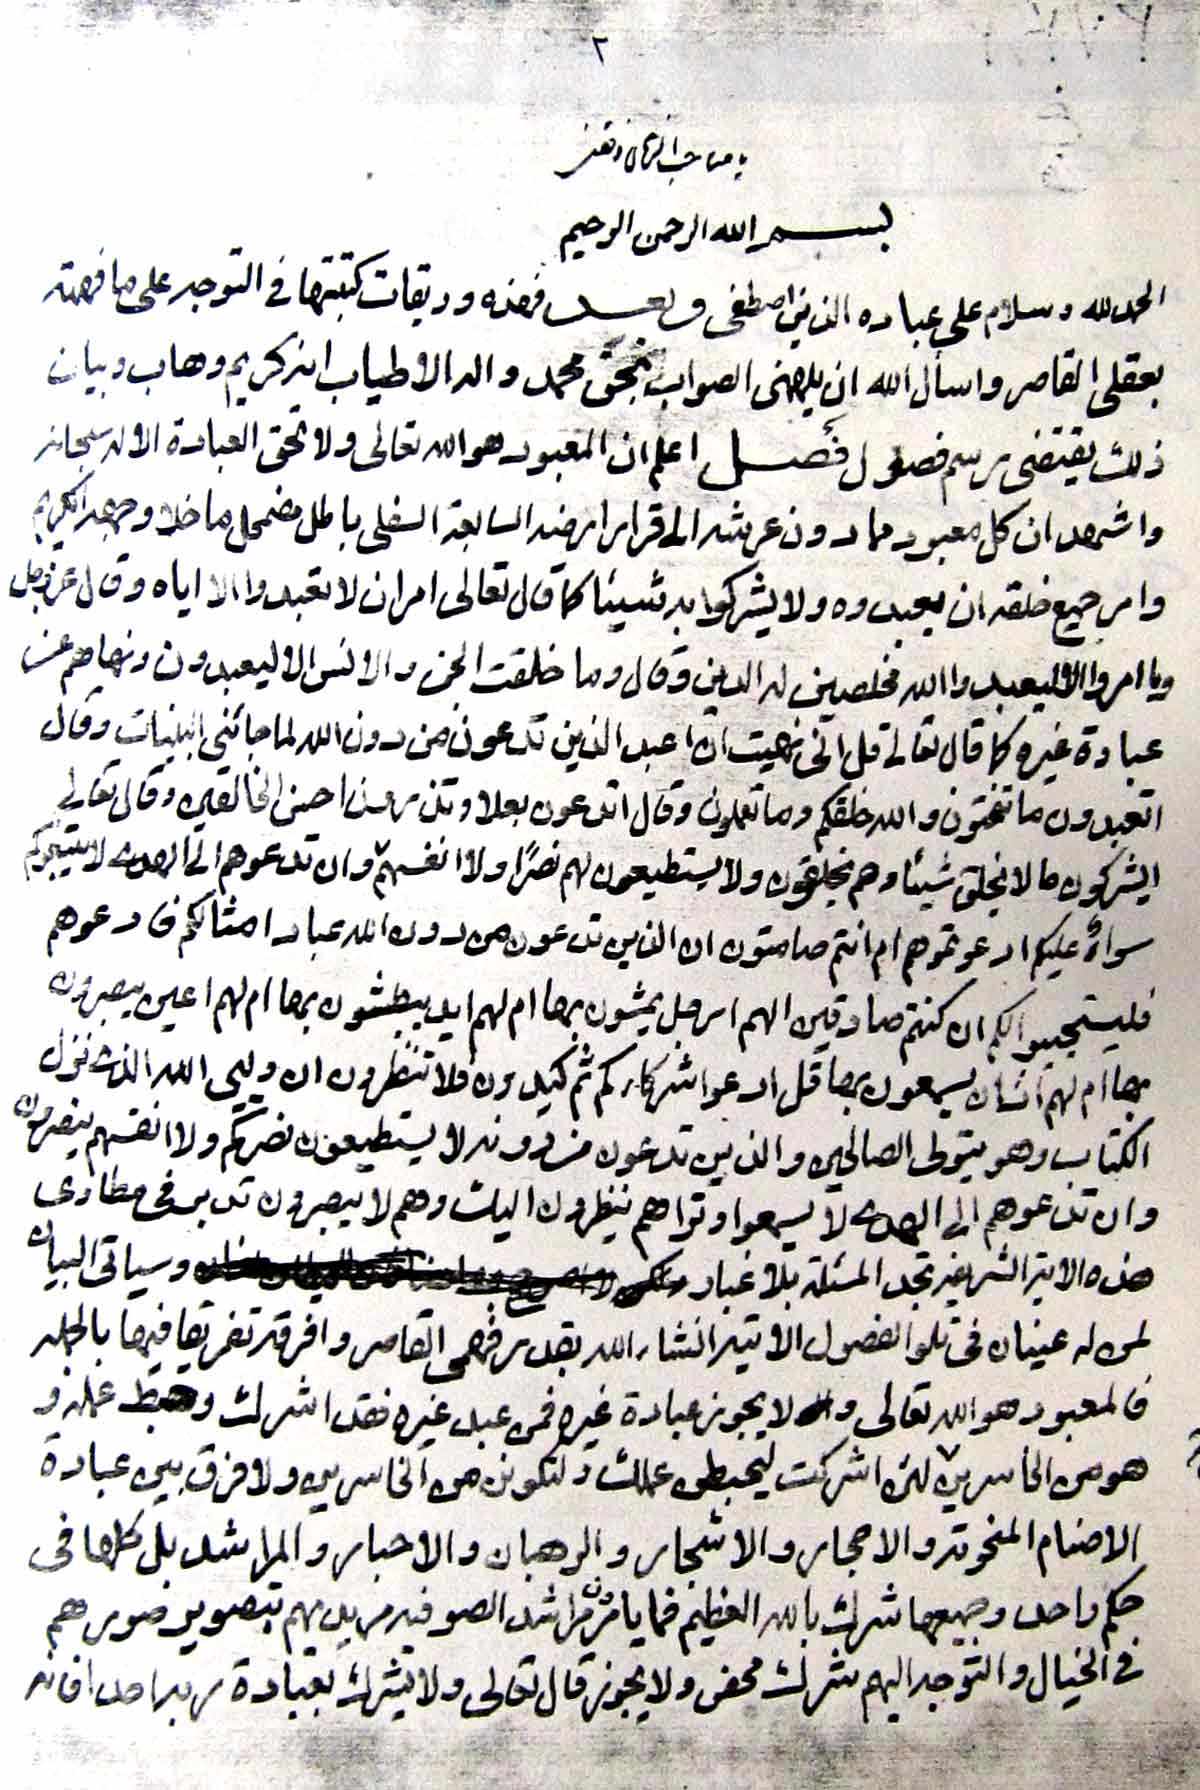 ٢
يا صاحب الزمان
بسم الله الرحمن الرحيم
الحمد لله و سلام على عباده الذين اصطفى و بعد فهذه وريقات كتبتها فى التوجه على ما فهمته
بعقلى القاصر و اسأل الله ان يلهمنى الصواب بحق محمد و اله الاطياب انه كريم وهاب و بيان
ذلك يقتضى رسم فصول فصل اعلم ان المعبود هو الله تعالى ولا تحق العبادة الا له سبحانه
واشهد ان كل معبود مما دون عرشه الى قرار ارضه السابعة السفلى باطل مضمحل ما خلا وجهه الكريم
وامر جميع خلقه ان يعبدوه ولا يشركوا به شيئا كما قال تعالى امر ان لا تعبدوا الا اياه وقال عز وجل
وما امروا الا ليعبدوا الله مخلصين له الدين وقال وما خلقت الجن والانس الا ليعبدون ونهاهم عن
عبادة غيره كما قال تعالى قل انى نهيت ان اعبد الذين تدعون من دون الله لما جائنى البينات وقال
اتعبدون ما تنحتون والله خلقكم وما تعملون وقال اتدعون بعلا وتذرون احسن الخالقين وقال تعالى
ايشركون ما لا يخلق شيئا وهم يخلقون ولا يستطيعون لهم نصرًا ولا انفسهم وان تدعوهم الى الهدى لا يتبعوكم
سواءٌ عليكم ادعوتموهم ام انتم صامتون ان الذين تدعون من دون الله عباد امثالكم فادعوهم
فليستجيبوا لكم ان كنتم صادقين الهم ارجل يمشون بها ام لهم ايد يبطشون بها ام لهم اعين يبصرون
بها ام لهم آذان يسمعون بها قل ادعوا شركاءكم ثم كيدون فلا تنظرون ان وليى الله الذى نزل
الكتاب وهو يتولى الصالحين والذين تدعون من دونه لا يستطيعون نصركم ولا انفسهم ينصرون
وان تدعوهم الى الهدى لا يسمعوا وتراهم ينظرون اليك وهم لا يبصرون تدبر فى مطاوى
هذه الاية الشريفة تجد المسئلة بلا غبار وسياتى البيان
لمن له عينان فى تلو الفصول الاتية انشاء الله بقدر فهمى القاصر و افرقه تفريقا فيها بالجملة
فالمعبود هو الله تعالى و لا يجوز عبادة غيره فمن عبد غيره فقد اشرك وحبط عمله و
هو من الخاسرين لئن اشركت ليحبطن عملك ولتكونن من الخاسرين ولا فرق بين عبادة
الاصنام المنحوتة والاحجار والاشجار والرهبان والاحبار والمراشد بل كلها فى
حكم واحد وجميعها شرك بالله العظيم فما يأمرون مراشد الصوفية مريديهم بتصوير صورهم
فى الخيال والتوجه اليهم شرك محض ولا يجوز قال تعالى ولا يشرك بعبادة ربه احدا فانه